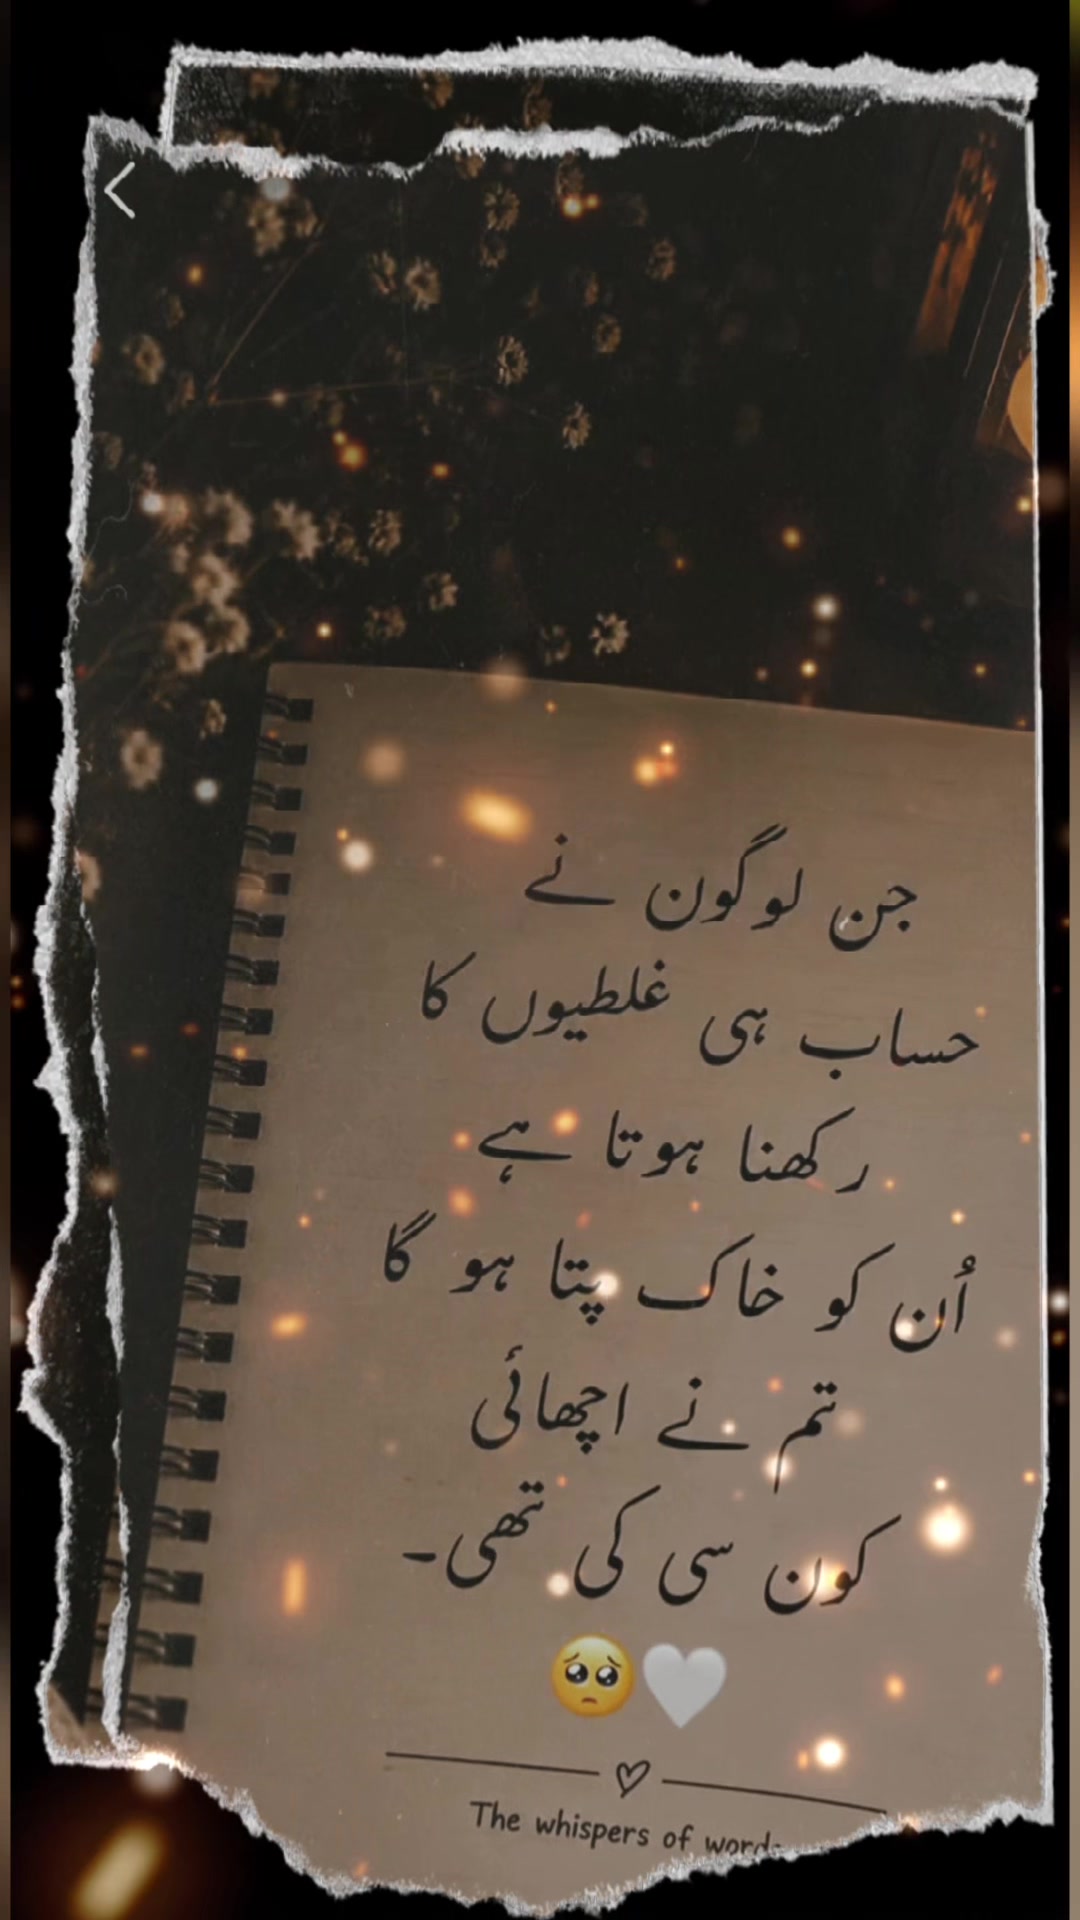 جن لوگون نے
حساب ہی غلطیوں کا
رکھنا ہوتا ہے
اُن کو خاک پتا ہو گا
تم نے اچھائی
کون سی کی تھی۔
🥺🤍
The whispers of words